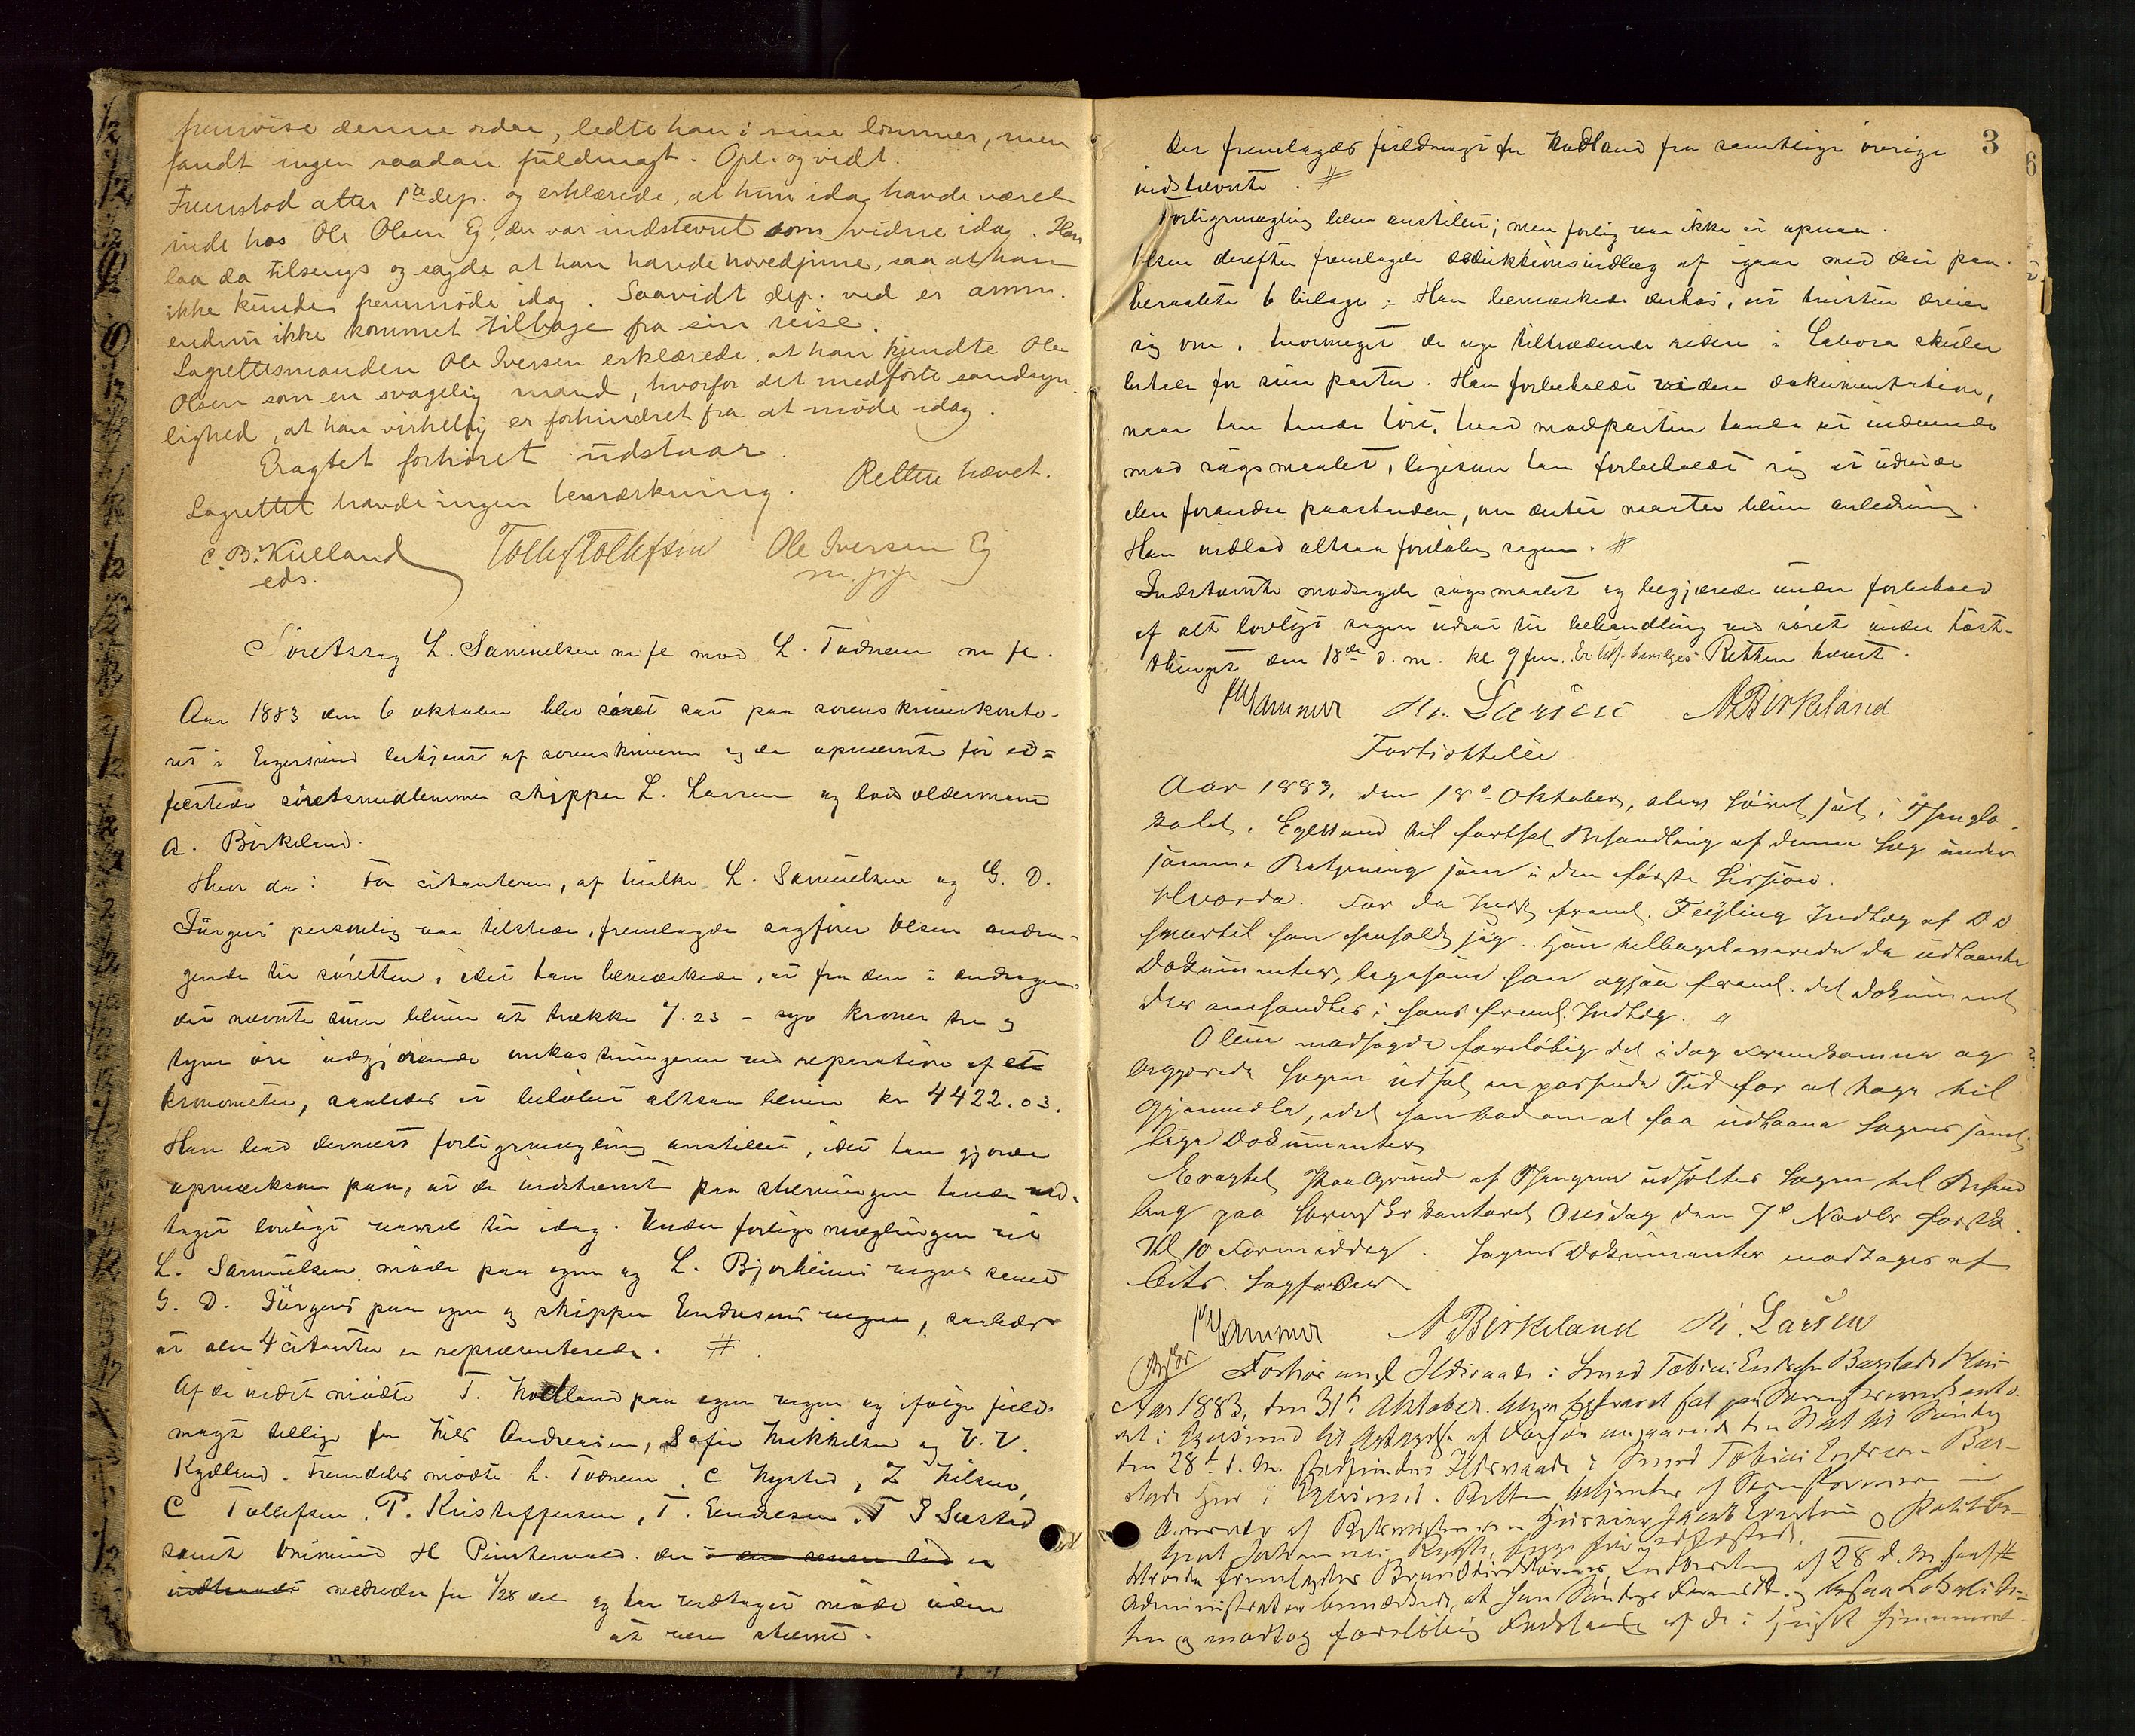 fremvise denne ordre, ledte han i sine lommer, men
fandt ingen saadan fuldmagt. Opl. og vedt.
Fremstod atter 1ste dep. og erklærede, at hun idag havde været
inde hos Ole Olsen Eg, der var indstevnt som vidne idag. Han
laa da tilsengs og sagde at han havde hovedpine, saa at han
ikke kunde fremmøde idag. Saavidt dep. ved er
endnu ikke kommet tilbage fra sin reise.
Lagrettesmanden Ole Iversen erklærede, at han kjendte Ole
Olsen som en svagelig mand, hvorfor det medførte sandsyn
lighed, at han virkelig er forhindret fra at møde idag.
Eragtet forhøret udstaar.
Lagrettet havde ingen bemærkning. Retten hævet.
C. B. Kielland Tollef Tollefsen Ole Iversen Eg
eds. m. p. p.
Søretssag L. Samuelsen m fl mod L. Tødnem m fl.
Aar 1883 den 6 oktober blev søret sat paa sorenskriverkonto-
ret i Egersund betjent af sorenskriveren og de opnævnte før ed=
fæstede søretsmedlemmer skipper L. Larsen og lods oldermand
A. Birkeland.
Hvor da: For citanterne, af hvilke L. Samuelsen og G. D.
Jürgens personlig var tilstede, fremlagde sagfører Olsen andra-
gende til søretten, idet han bemærkede, at fra den i andragen-
det nævnte sum bliver at trække 7.23 - syv kroner tre og
tyve øre udgjørende omkostningerne ved reparation af et
kronometer, saaledes at beløbet altsaa bliver kr 4422.03.
Han bad dernæst forligsmægling anstillet, idet han gjorde
opmærksom paa, at de indstævnte paa stævningen havde ved-
taget lovligt varsel til idag. Under forligsmæglingen vil
L. Samuelsen møde paa egne og L. Bjerheims vegne samt
G. D. Jürgens paa egne og skipper Endresens vegne, saaledes
at alle 4 citanter er repræsenterede. #
Af de indst mødte T. Hodland paa egne vegne og ifølge fuld-
magt tillige for Nils Andreasen, Sofie Mikkelsen og V. V.
Kydland. Fremdeles mødte L. Tødnem, C Nysted, Z Nilsen,
C Tollefsen, P. Kristoffersen, T. Endresen, T S Seested
samt Enimund H Puntervold. der i den senere tid er
indtraadt medreder for 1/28 del og har vedtaget møde uden
at være stævnt.
3
Der fremlagdes fuldmagt for Hodland fra samtlige øvrige
indstævnte. #
Forligsmægling blev anstillet; men forlig var ikke at opnaa.
Olsen derefter fremlagde deduktionsindlæg af igaar med deri paa-
beraabte 6 bilage. Han bemærkede derhos, at tvisten dreier
sig om, hvormeget de nye tiltrædende redere i Labora skulde
betale for sine parter. Han forbeholdt videre dokumentation,
naar han havde hørt, hvad modparten havde at indvende
mod søgsmaalet, ligesom han forbeholdt sig at udvide
eller forandre paastanden, om dertil maatte blive anledning.
Han indlod altsaa foreløbig sagen. #
Indstævnte modsagde søgsmaalet og begjærede under forbehold
af alt lovligt sagen udsat til behandling ved søret under høst-
thinget den 18de d. m. kl 9 fm. Er bevilget. Retten hævet.
Hammer L. Larsen A Birkeland
Fortsættelse
Aar 1883, den 18de Oktober, blev søret sat i Thinglo-
kalet i Egersund til fortsat Behandling af denne Sag under
samme Betjening som i den første Session.
Hvorda. For de Indst freml. Feyling Indlæg af D D
hvortil han henholdt sig. Han tilbageleverede de udlaante
Dokumenter, ligesom han ogsaa freml. det Dokument
der omhandles i hans freml. Indlæg. "
Olsen modsagde foreløbig det idag Fremkomne og
begjærede Sagen udsat en passende Tid for at tage til
Gjenmæle, idet han bad om at faa udlaane Sagens samt-
lige Dokumenter
Eragtet Paa Grund af Thingene udsættes Sagen til Behand
ling paa Sorenskr. kontoret Onsdag den 7de Novbr førstk.
Kl 10 Formiddag. Sagens Dokumenter modtages af
Cits. Sagfører
Hammer A Birkeland L. Larsen
Forhør ang Ildsvaade i Smed Tobias Endresen Barstads Hus
Aar 1883, den 31te Oktober blev Extraret sat paa Sorenskriverkonto-
ret i Egersund til Optagelse af Forhør angaaende den Nat til Søndag
den 28de d. M. stedfundne Ildsvaade i Smed Tobias Endresen Bar-
stads Hus i Egersund. Retten betjentes af Sorenskriveren
fremlagdes Branddirektørens Indberetning af 28 d. M.
Administrator bemærkede, at han Søndags Formidd.
og modtog foreløbig